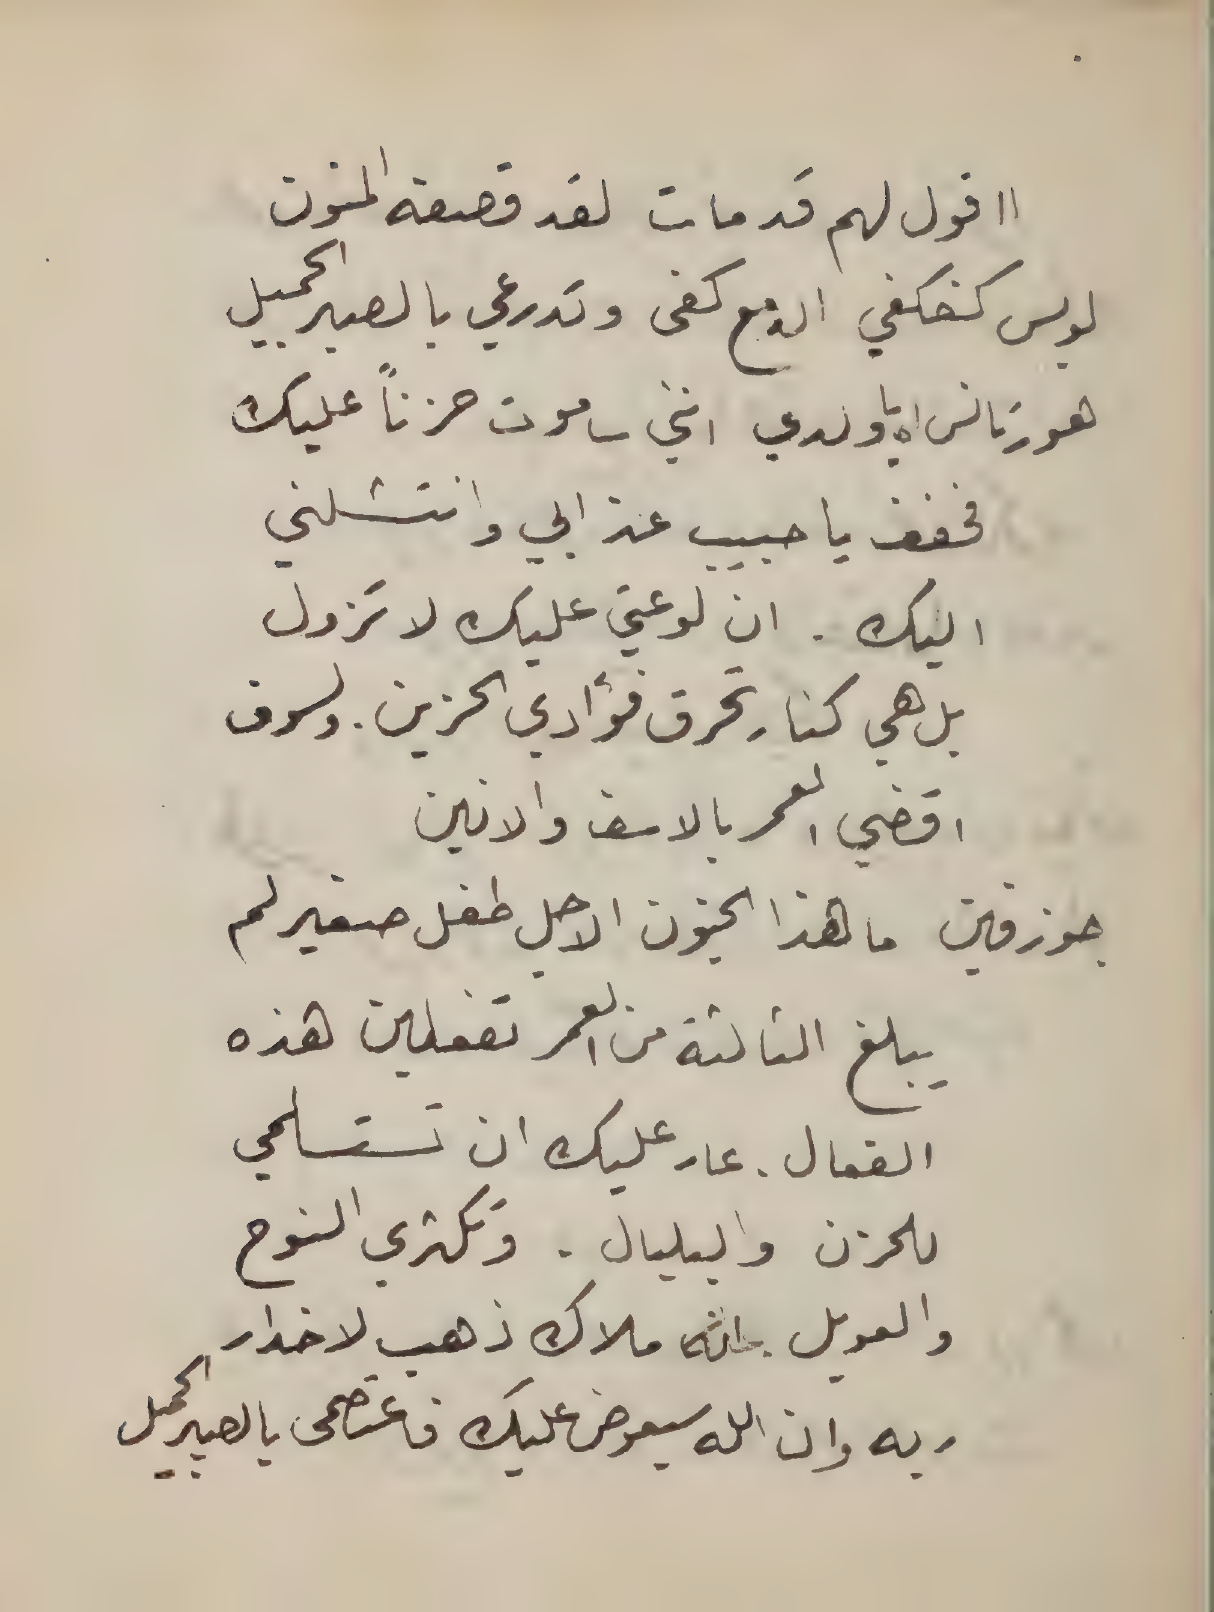 ااقول لهم قد مات لقد قصفته المنون
لويس كفكفي الدمع كفى وتدرعي بالصبر الجميل
هورتانس اه يا ولدي انني ساموت حزناً عليك
فخفف يا حبيب عذابي وانتشلني
اليك . ان لوعتي عليك لا تزول
بل هي كنار تحرق فؤادي الحزين . ولسوف
اقضي العمر بالاسف والانين
جوزفين ما هذا الجنون الاجل طفل صغير لم
يبلغ الثالثة من العمر تفعلين هذه
الفعال . عار عليك ان تستسلمي
للحزن والبلبال . وتكثري النوح
والعويل . انه ملاك ذهب لاخدار
ربه وان الله سيعوض عليك فاعتصمى بالصبر الجميل